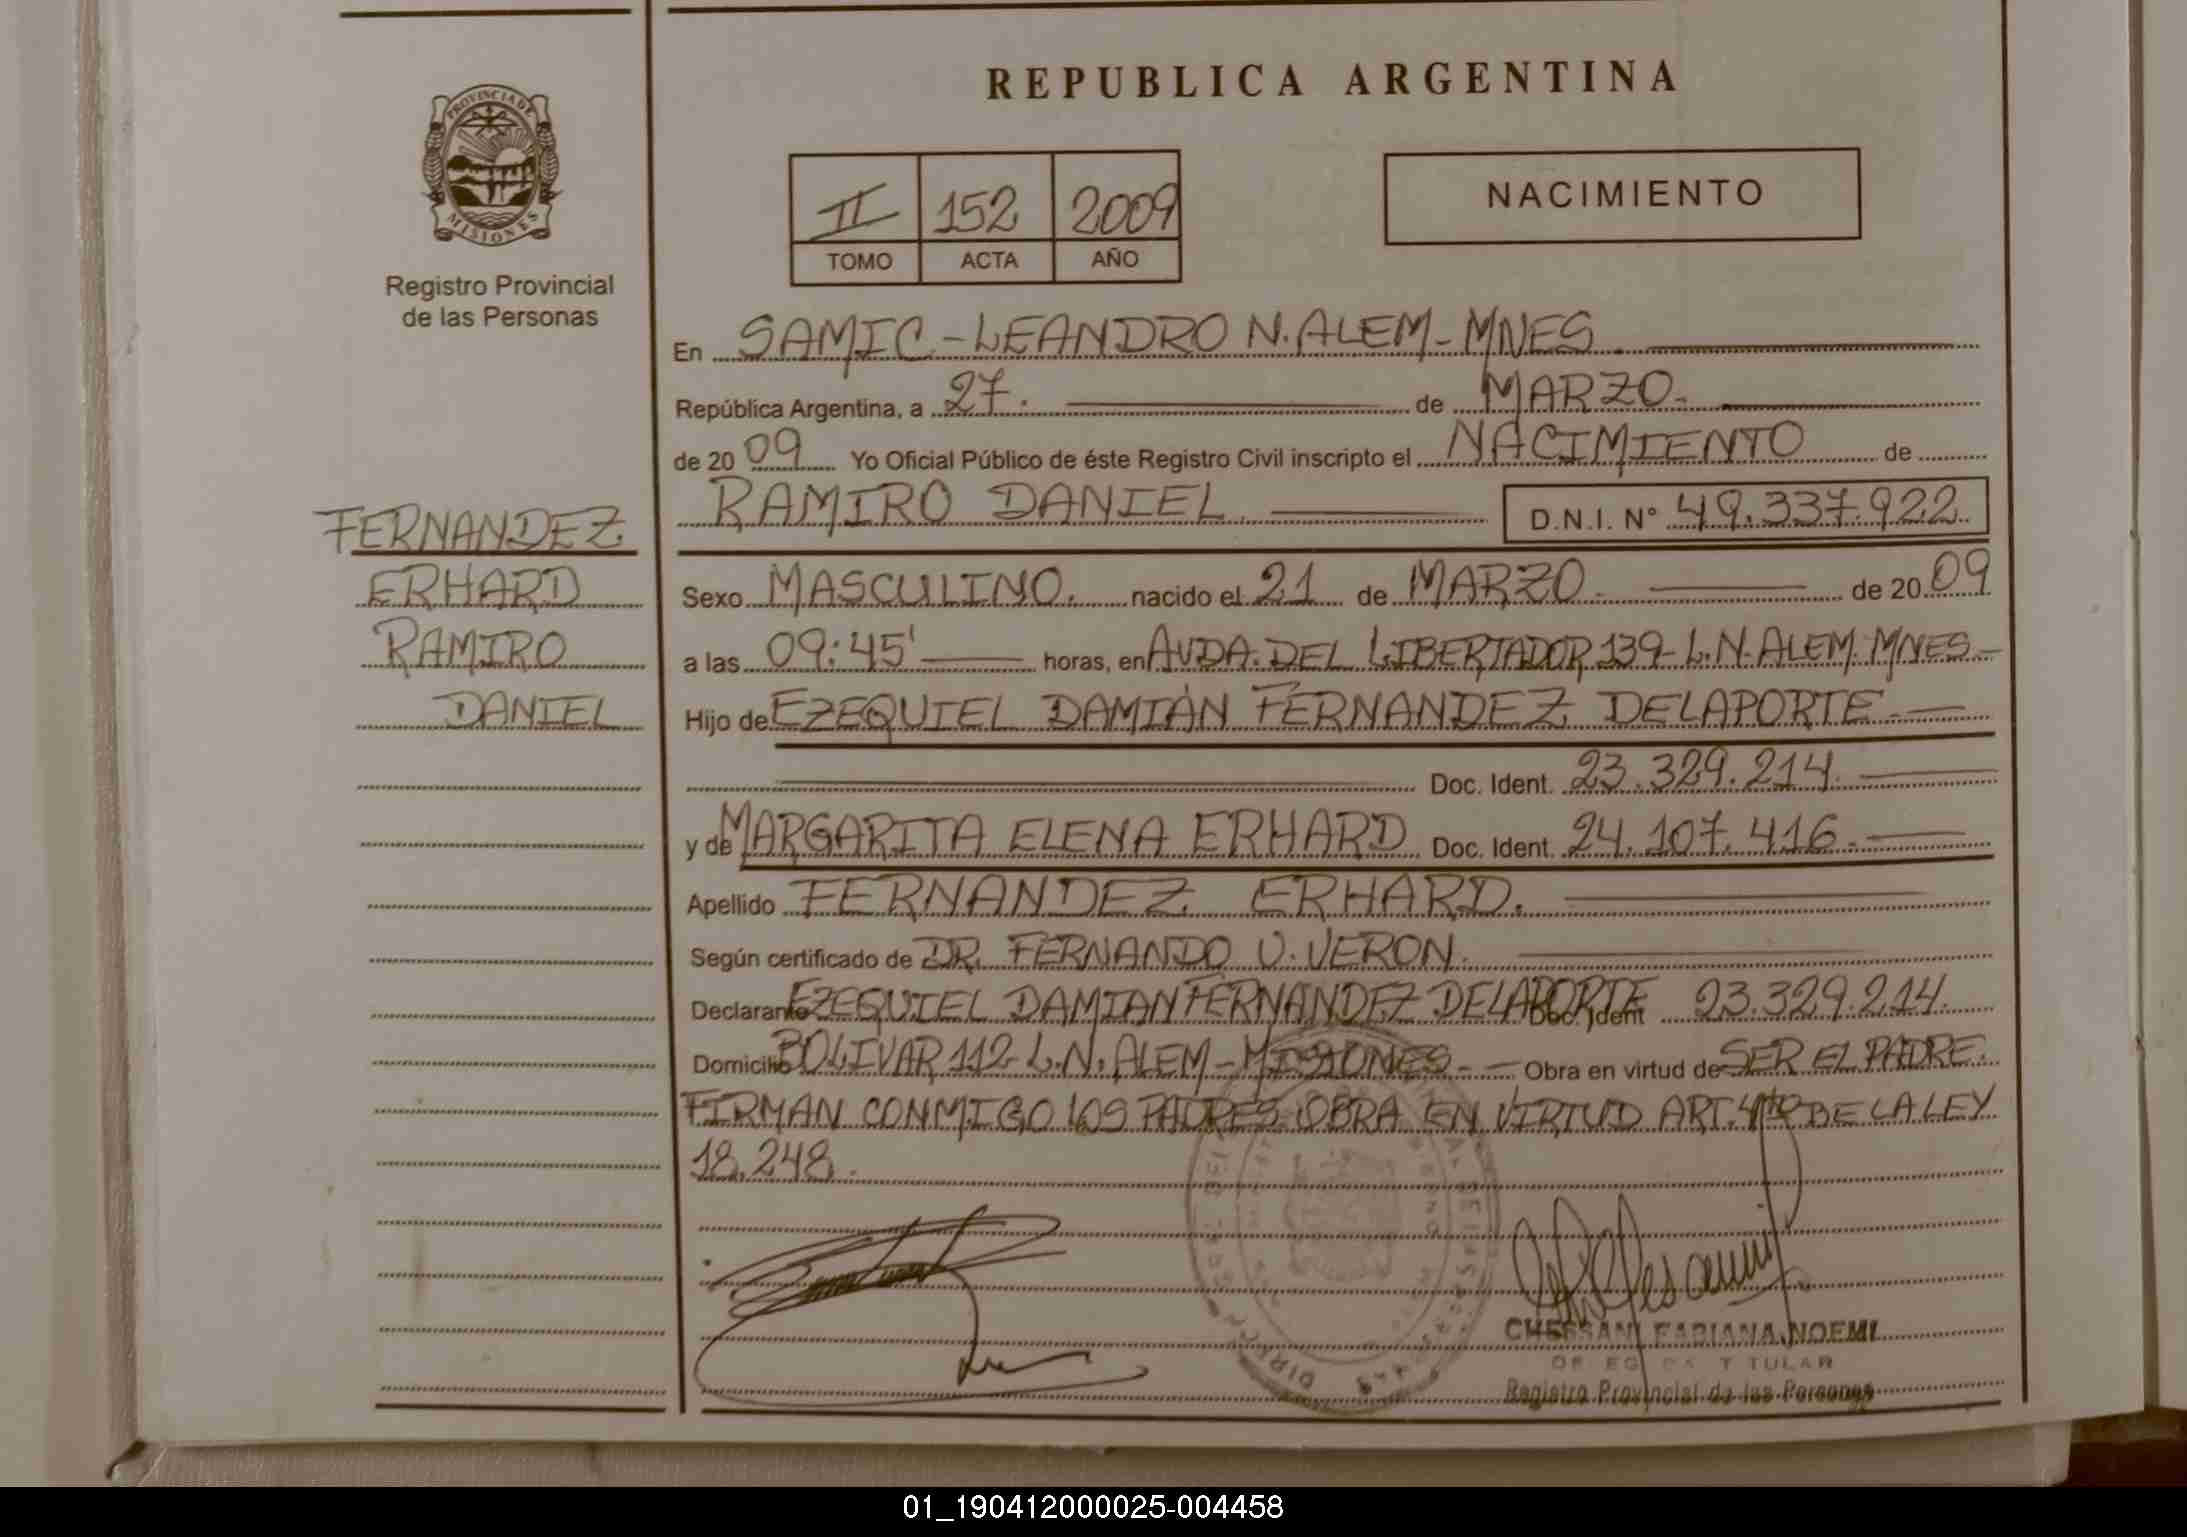 REPUBLICA ARGENTINA
PROVINCIA DE
MISIONES
Registro Provincial
de las Personas
II 152 2009
TOMO ACTA AÑO
NACIMIENTO
En SAMIC - LEANDRO N. ALEM - MNES.
República Argentina, a 27. de MARZO.
de 20 09 Yo Oficial Público de éste Registro Civil inscripto el NACIMIENTO de
RAMIRO DANIEL. D.N.I. N° 49.337.922.
FERNANDEZ
ERHARD
RAMIRO
DANIEL
Sexo MASCULINO. nacido el 21 de MARZO. de 20 09
a las 09:45' horas, en AVDA. DEL LIBERTADOR 139 - L.N. ALEM. MNES.-
Hijo de EZEQUIEL DAMIÁN FERNANDEZ DELAPORTE.-
Doc. Ident. 23.329.214.
y de MARGARITA ELENA ERHARD Doc. Ident. 24.107.416.
Apellido FERNANDEZ ERHARD.
Según certificado de DR. FERNANDO U. VERON.
Declarante EZEQUIEL DAMIAN FERNANDEZ DELAPORTE Doc. Ident 23.329.214.
Domicilio BOLIVAR 112 - L.N. ALEM - MISIONES. - Obra en virtud de SER EL PADRE.
FIRMAN CONMIGO LOS PADRES. OBRA EN VIRTUD ART. 4to DE LA LEY
18.248.
CHESSANI FABIANA NOEMI
TITULAR
Registro Provincial de las Personas
01_190412000025-004458